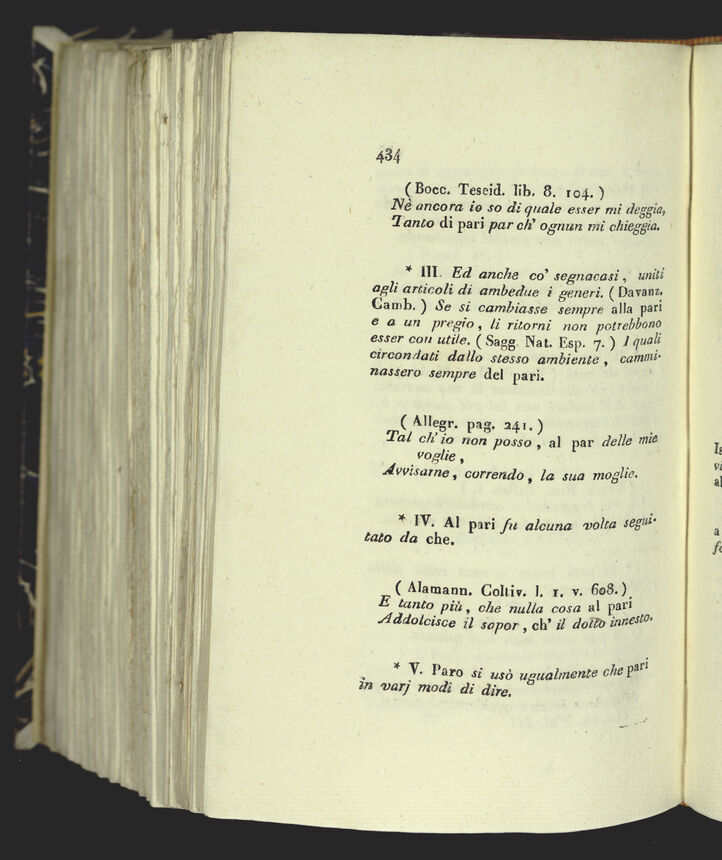 434
( Bocc. Teseid. lib. 8. 104. )
Nè ancora io so di quale esser mi deggia,
Tanto di pari par ch' ognun mi chieggia.
* III. Ed anche co' segnacasi, uniti
agli articoli di ambedue i generi. ( Davanz.
Camb. ) Se si cambiasse sempre alla pari
e a un pregio, li ritorni non potrebbono
esser con utile. ( Sagg. Nat. Esp. 7. ) I quali
circondati dallo stesso ambiente, cammi-
nassero sempre del pari.
( Allegr. pag. 241. )
Tal ch' io non posso, al par delle mie
voglie,
Avvisarne, correndo, la sua moglie.
* IV. Al pari fu alcuna volta segui-
tato da che.
( Alamann. Coltiv. l. 1. v. 608. )
E tanto più, che nulla cosa al pari
Addolcisce il sapor, ch' il dotto innesto.
* V. Paro si usò ugualmente che pari
in varj modi di dire.